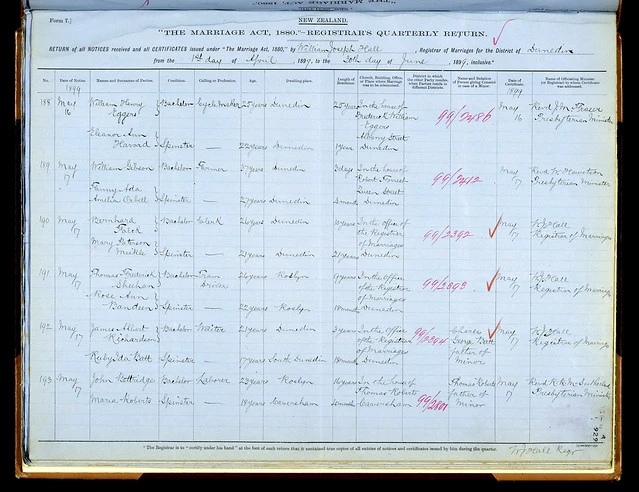 Form 7.]
NEW ZEALAND.
"THE MARRIAGE ACT, 1880."—REGISTRAR'S QUARTERLY RETURN.
RETURN of all NOTICES received and all CERTIFICATES issued under "The Marriage Act, 1880," by William Joseph Hall, Registrar of Marriages for the District of Dunedin
from the 1st day of April, 1899, to the 30th day of June, 1899, inclusive.*
No. Date of Notice. Names and Surnames of Parties. Condition. Calling or Profession. Age. Dwelling-place. Length of Residence. Church, Building, Office, or Place where Marriage was to be solemnized. District in which the other Party resides, when Parties reside in different Districts. Name and Relation of Person giving Consent in case of a Minor. Date of Certificate. Name of Officiating Minister (or Registrar) to whom Certificate was addressed.
1899 1899
188 May 16 William Henry Eggers Bachelor Cycle maker 25 years Dunedin 25 years In the house of Frederick William Eggers Albany Street Dunedin 99/2486 May 16 Revd J. M. Fraser Presbyterian Minister
Eleanor Ann Spinster — 22 years Dunedin 1 year
189 May 17 William Gibson Bachelor Farmer 37 years Dunedin 3 days In the house of Robert Forrest Queen Street Dunedin 99/2412 May 17 Revd Presbyterian Minister
Fanny Ada Amelia Spinster — 27 years Dunedin
190 May 17 Bernhard Bachelor Clerk 26 years Dunedin In the office of the Registrar of Marriages Dunedin 99/2392 May 17 WJ Hall Registrar of Marriages
Mary Paterson Spinster — 21 years Dunedin 21 years
191 May 17 Thomas Frederick Sheehan Bachelor Tram Driver 26 years Roslyn 9 years In the Office of the Registrar of Marriages Dunedin 99/2393 May 17 WJ Hall Registrar of Marriages
Rose Ann Spinster — 22 years Roslyn
192 May 17 James Albert Richardson Bachelor Waiter 21 years Dunedin 3 years In the Office of the Registrar of Marriages Dunedin 99/2394 George Batt father of Minor May 17 WJ Hall Registrar of Marriages
Ruby Ida Batt Spinster — 17 years South Dunedin
193 May 17 John Bachelor Labourer 22 years Roslyn In the house of Thomas Roberts Caversham 99/2801 Thomas Roberts father of Minor May 17 Revd Presbyterian Minister
Maria Roberts Spinster — 18 years Caversham
* The Registrar is to "certify under his hand" at the foot of each return that it contains true copies of all entries of notices and certificates issued by him during the quarter.
WJ Hall Regr